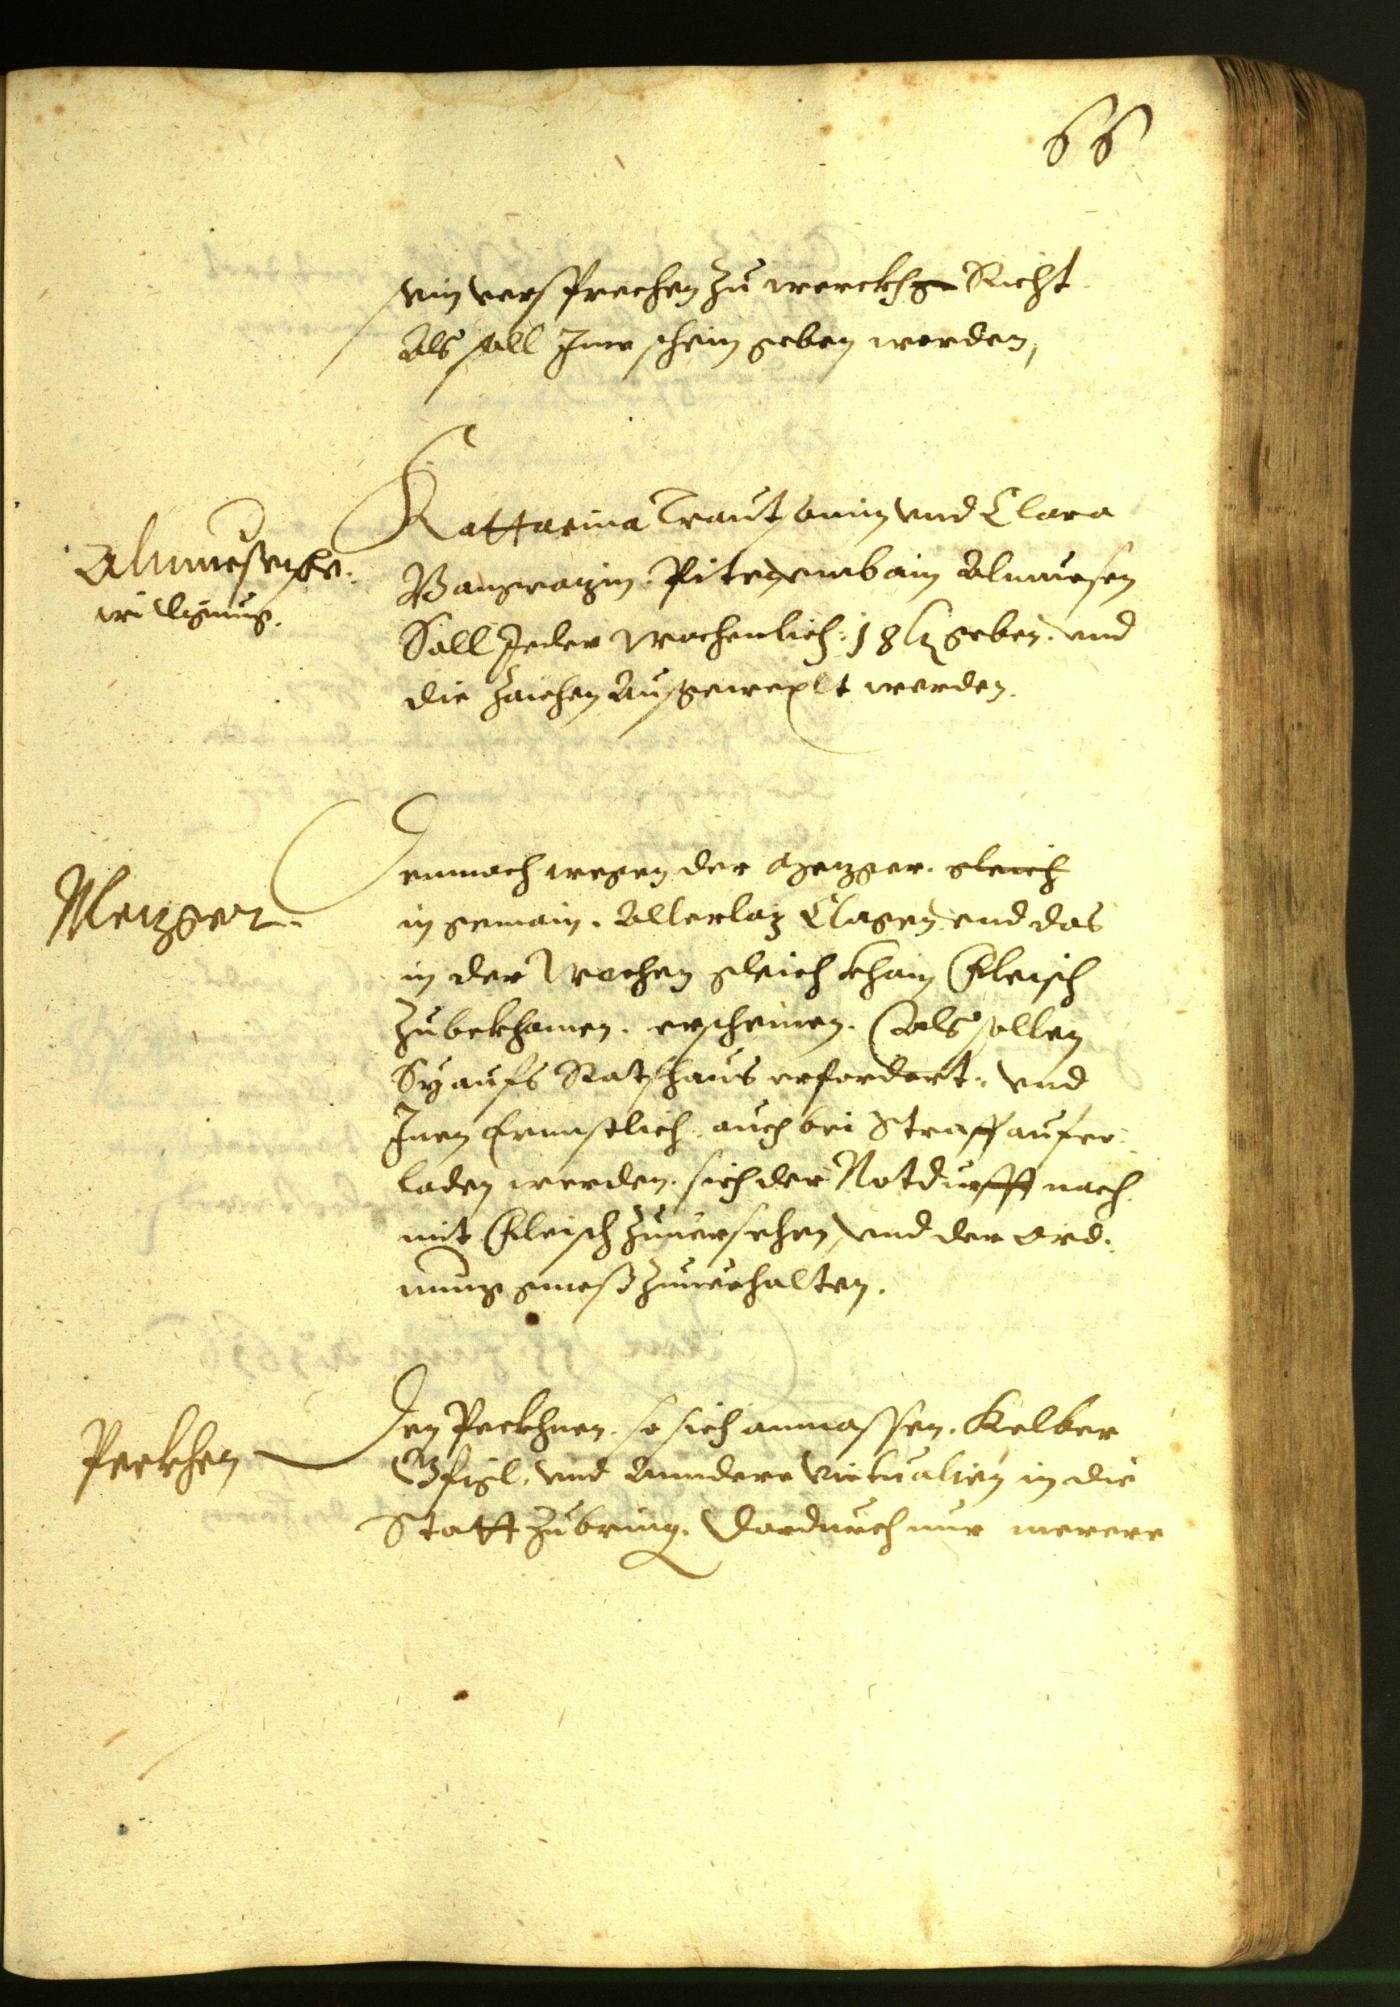 66
sein versprechen zu werckh Richt
Als soll Ime schein geben werden,
Almuesens be:
willigung.
Kattarina Trautsonin vnd Clara
Pite vmb ain Almuesen
Soll Jeder Wochenlich: 18 geben. vnd
die zaichen Ausgewexlt werden.
Mezger.
Demnach wegen der Mezger. gleich
in gemain. Allerlay Clagen, vnd das
in der Wochen gleich khain Fleisch
zubekhomen. erscheinen. Als sollen
Sy aufs Rathaus erfordert. vnd
Inen Ernnstlich. auch bei Straff aufer:
laden werden. sich der Notdurfft nach
mit Fleisch zuuersehen, vnd der Ord:
nung gmeß zuuerhalten.
Peckhen
Den Peckhnen. so sich anmassen. Kelber
vnd Anndere Victualien in die
Statt zubring. Dardurch nur merere